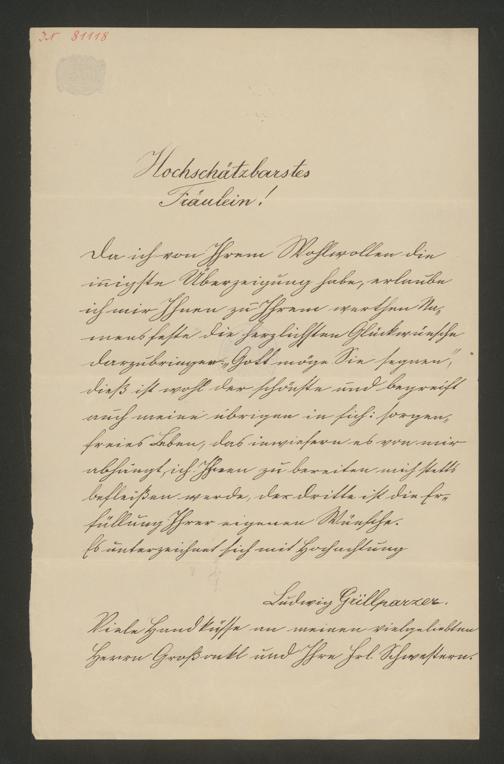 JN 81118
Hochschätzbarstes
Fräulein!
Da ich von Ihrem Wohlwollen die
innigste Überzeigung habe, erlaube
ich mir Ihnen zu Ihrem werthen Na-
mensfeste die herzlichsten Glückwünsche
darzubringen „Gott möge Sie segnen",
dieß ist wohl der schönste und begreift
auch meine übrigen in sich: sorgen-
freies Leben, das inwiefern es von mir
abhängt, ich Ihnen zu bereiten mich stetts
befleißen werde, der dritte ist die Er-
füllung Ihrer eigenen Wünsche.
Es unterzeichnet sich mit Hochachtung
Ludwig Grillparzer.
Viele Handküsse an meinen vielgeliebten
Herrn Großonkl und Ihre Frl. Schwestern.